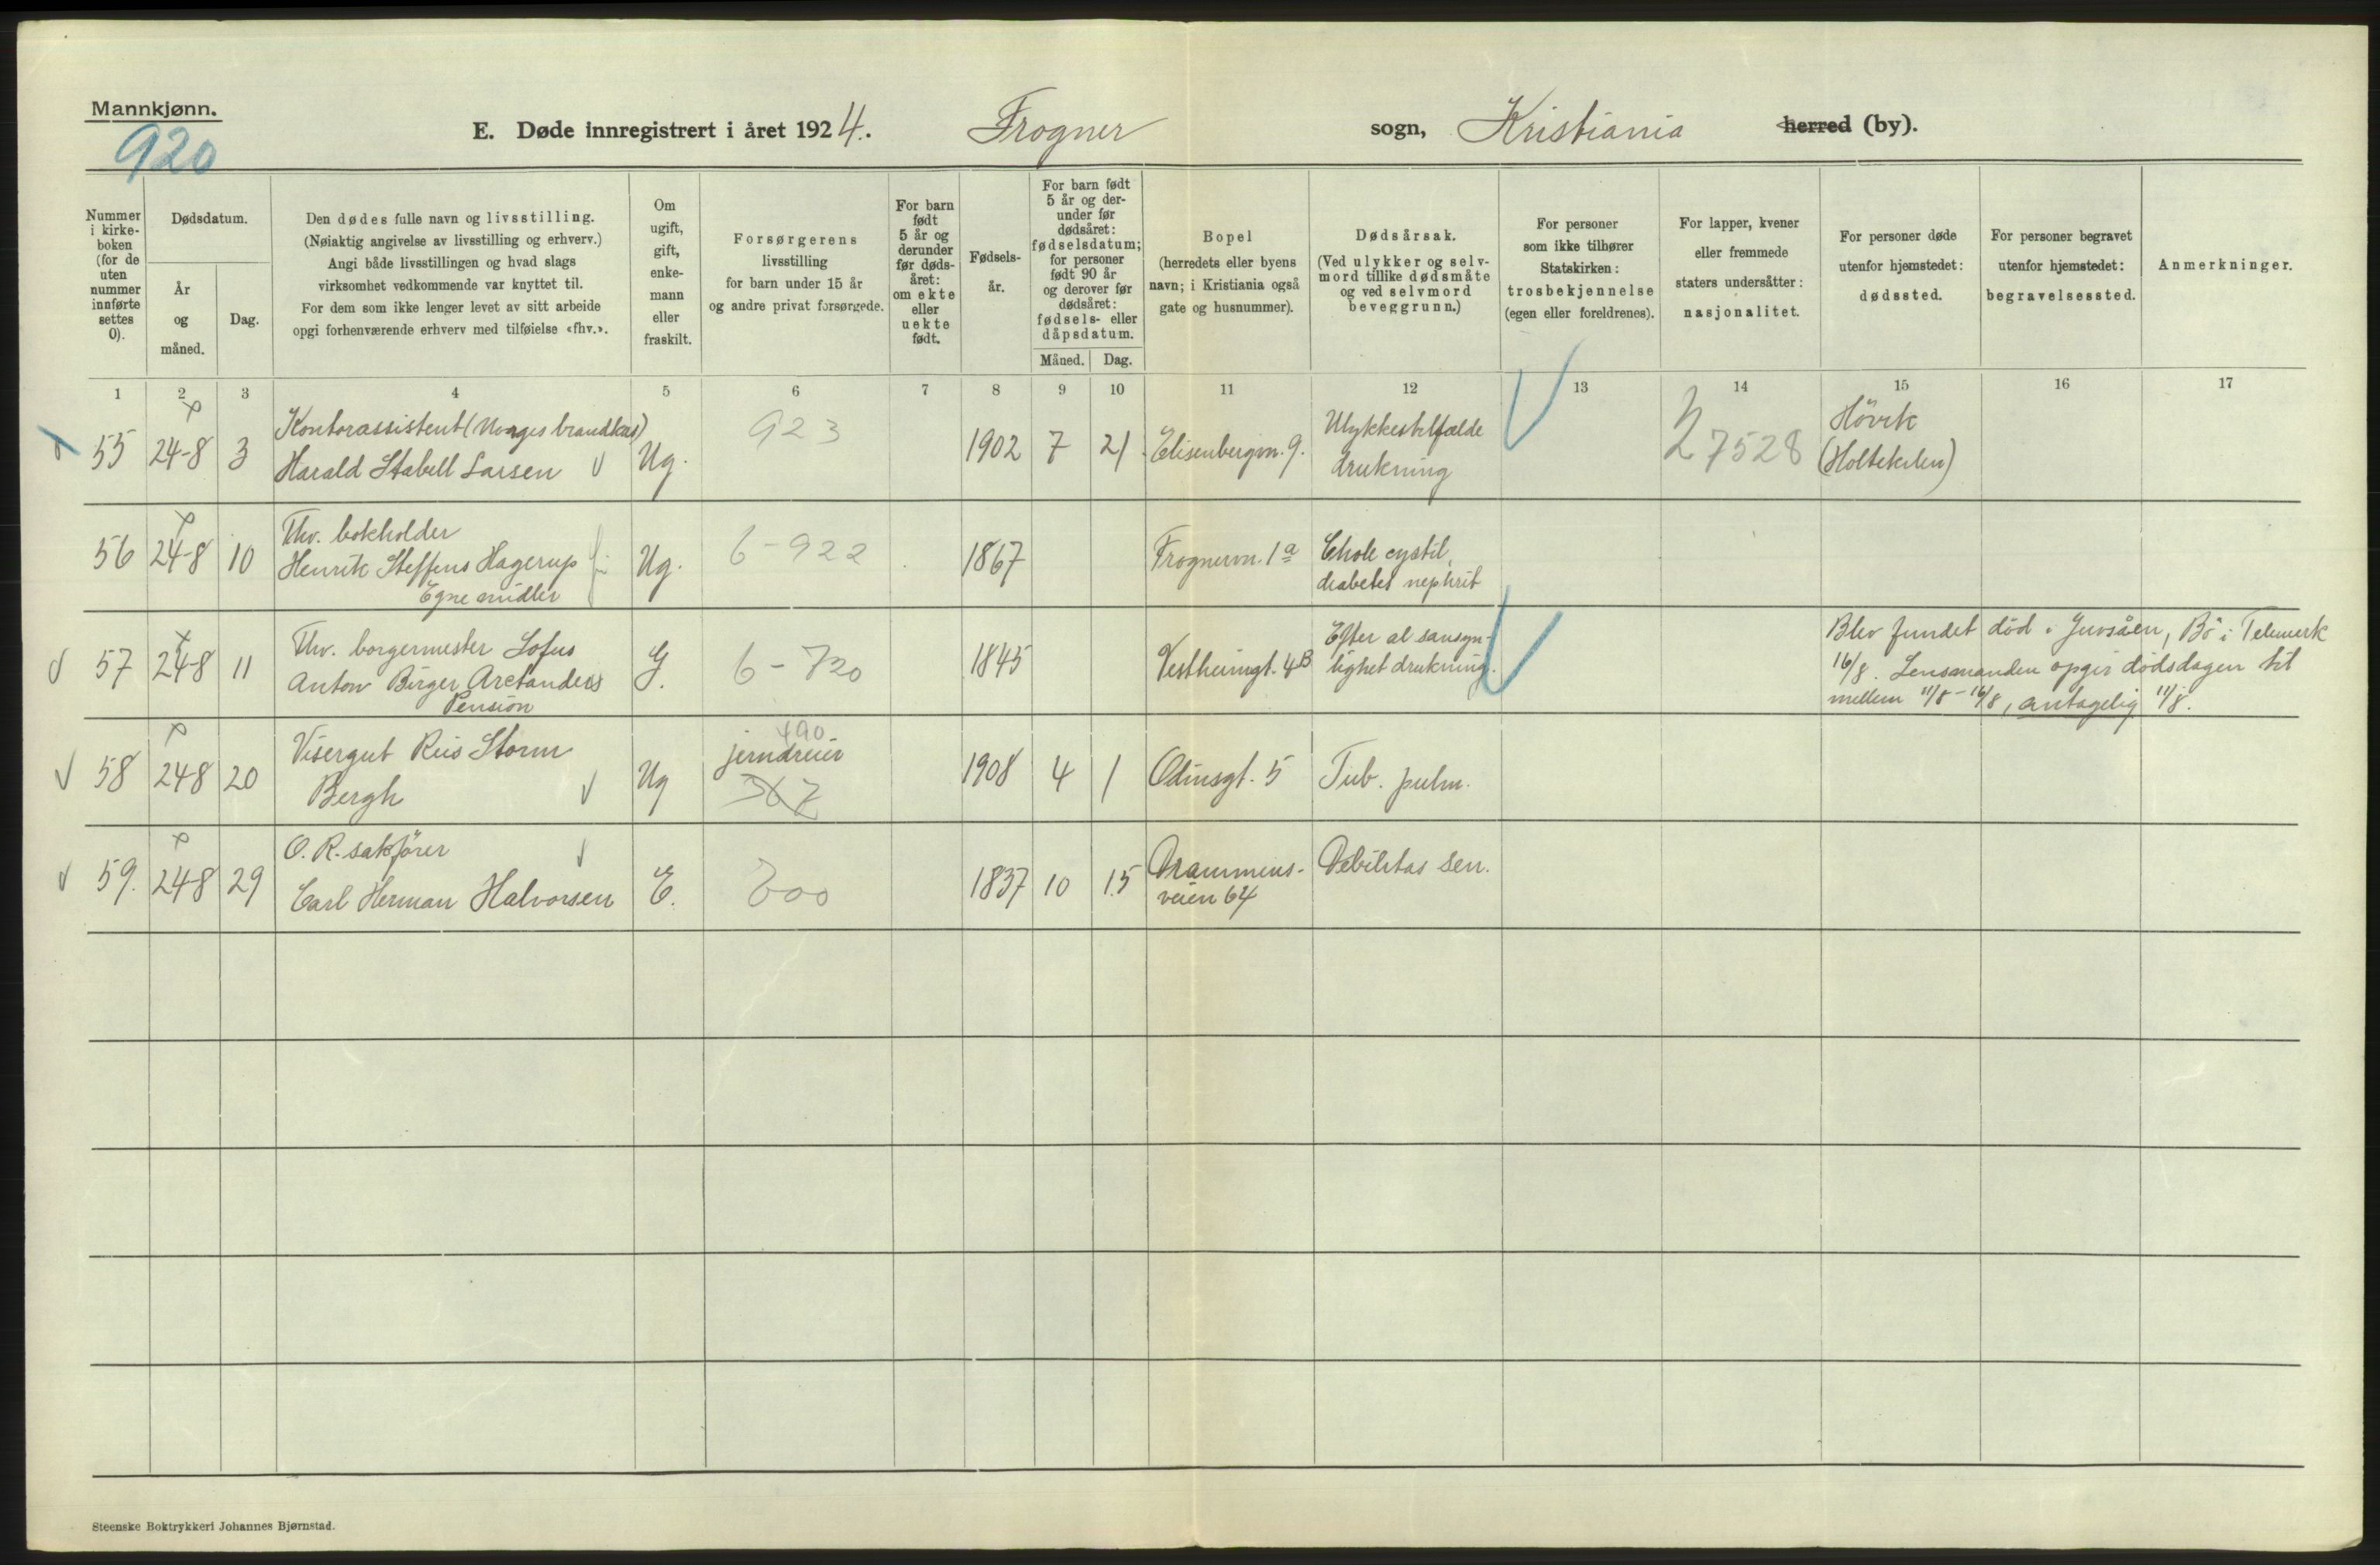 Mannkjønn.
920
E. Døde innregistrert i året 1924. Frogner sogn, Kristiania herred (by).
Nummer i kirkeboken (for de uten nummer innførte settes 0).
Dødsdatum.
År og måned.
Dag.
Den dødes fulle navn og livsstilling.
(Nøiaktig angivelse av livsstilling og erhverv.)
Angi både livsstillingen og hvad slags
virksomhet vedkommende var knyttet til.
For dem som ikke lenger levet av sitt arbeide
opgi forhenværende erhverv med tilføielse «fhv.».
Om ugift, gift, enkemann eller fraskilt.
Forsørgerens
livsstilling
for barn under 15 år
og andre privat forsørgede.
For barn født 5 år og derunder før dødsåret: om ekte eller uekte født.
Fødselsår.
For barn født 5 år og derunder før dødsåret: fødselsdatum; for personer født 90 år og derover før dødsåret: fødsels- eller dåpsdatum.
Måned. Dag.
Bopel
(herredets eller byens
navn; i Kristiania også
gate og husnummer).
Dødsårsak.
(Ved ulykker og selvmord tillike dødsmåte
og ved selvmord
beveggrunn.)
For personer
som ikke tilhører
Statskirken:
trosbekjennelse
(egen eller foreldrenes).
For lapper, kvener
eller fremmede
staters undersåtter:
nasjonalitet.
For personer døde
utenfor hjemstedet:
dødssted.
For personer begravet
utenfor hjemstedet:
begravelsessted.
Anmerkninger.
1 2 3 4 5 6 7 8 9 10 11 12 13 14 15 16 17
55 24-8 3 Kontorassistent (Norges brandkas) Harald Stabell Larsen Ug. 923 1902 7 21 Elisenbergvn. 9. Ulykkestilfælde drukning 27528 Hövik (Holtekilen)
56 24-8 10 Fhv. bokholder Henrik Steffens Hagerup Egne midler Ug. 6-922 1867 Frognervn. 1a Chole cystit, diabetes nephrit
57 24-8 11 Fhv. borgermester Sofus Anton Birger Arctander Pension G. 6-720 1845 Vestheimgt. 4B Efter al sansynlighet drukning. Blev fundet död i Juvsåen, Bö i Telemark
16/8. Lensmanden opgir dödsdagen til
mellem 11/8-16/8, antagelig 11/8.
58 248 20 Visergut Reis Storm Bergh Ug 490 jerndreier 1908 4 1 Odinsgt. 5 Tub. pulm.
59. 248 29 O. R. sakförer Carl Herman Halvorsen E. 700 1837 10 15 Drammensveien 64 Debilitas sen.
Steenske Boktrykkeri Johannes Bjørnstad.